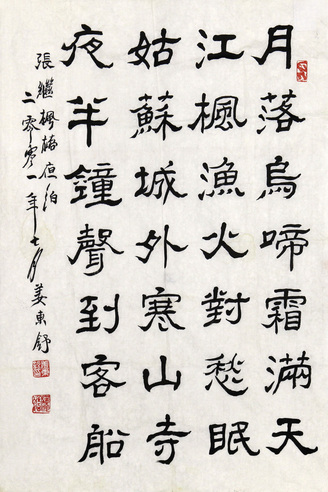 月落烏啼霜滿天
江楓漁火對愁眠
姑蘇城外寒山寺
夜半鐘聲到客船
張繼楓橋夜泊
二零零一年七月姜東舒